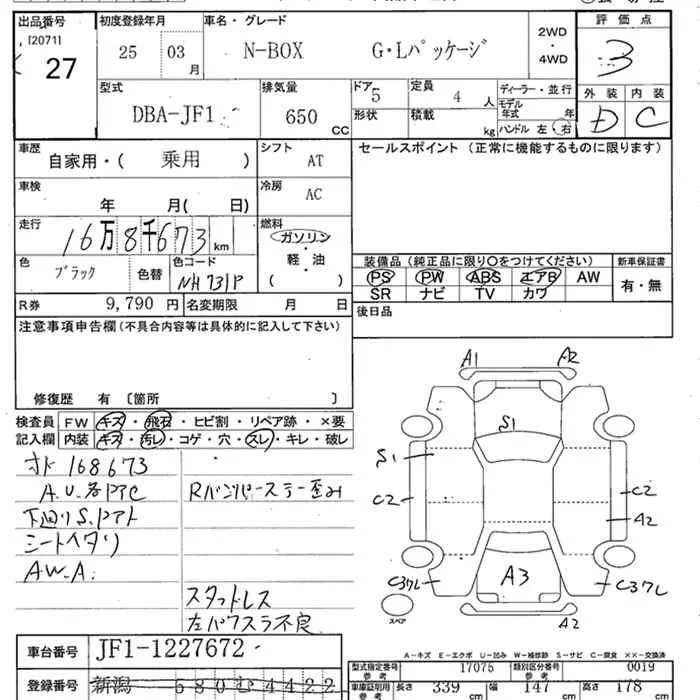 出品番号 初度登録年月 車名・グレード 2WD・4WD 評価点
[2071] 27 25 03月 N-BOX G・Lパッケージ 3
型式 排気量 ドア 5 定員 4人 ディーラー・並行 外装 内装
DBA-JF1 650cc 形状 積載 kg モデル年式 年 D C
ハンドル 左・右
車歴 自家用・( 乗用 ) シフト AT セールスポイント(正常に機能するものに限ります)
車検 年 月( 日) 冷房 AC
走行 16万8千673km 燃料 ガソリン・軽・油 ( )
装備品(純正品に限り○をつけてください) 新車保証書
色 ブラック 色替 色コード NH731P PS PW ABS エアB AW 有・無
SR ナビ TV カワ
R券 9,790円 名変期限 月 日 後日品
注意事項申告欄(不具合内容等は具体的に記入して下さい)
修復歴 有 〔箇所 〕
検査員記入欄 FW キズ・飛石・ヒビ割・リペア跡・×要
内装 キズ・汚レ・コゲ・穴・スレ・キレ・破レ
オド 168673
A.U.各PтC Rバンパーステー歪み
下廻りS.Pтト
シートヘタリ
AW.A.
スタッドレス
左パワスラ不良
A1 A2
S1
S1
C2 C2
A2
C37L A3 C37L
スペア A2
A-キズ E-エクボ U-凹み W-補修跡 S-サビ C-腐食 ××-交換済
車台番号 JF1-1227672
型式指定番号 参考 17075 類別区分番号 参考 0019
登録番号 新潟 580 む 4422
車庫証明用 参考 長さ 339cm 幅 147cm 高さ 178cm